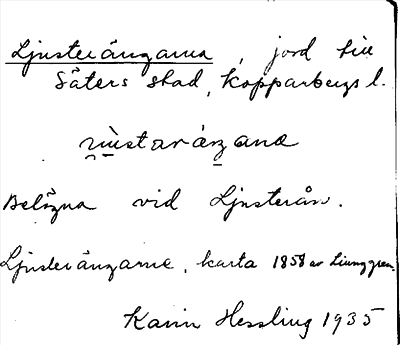 Ljusterängarna, jord till
Säters stad, Kopparbergs l.
Belägna vid Ljusterån.
Ljusterängarne, karta 1858 av Ljunggren.
Karin Hessling 1935